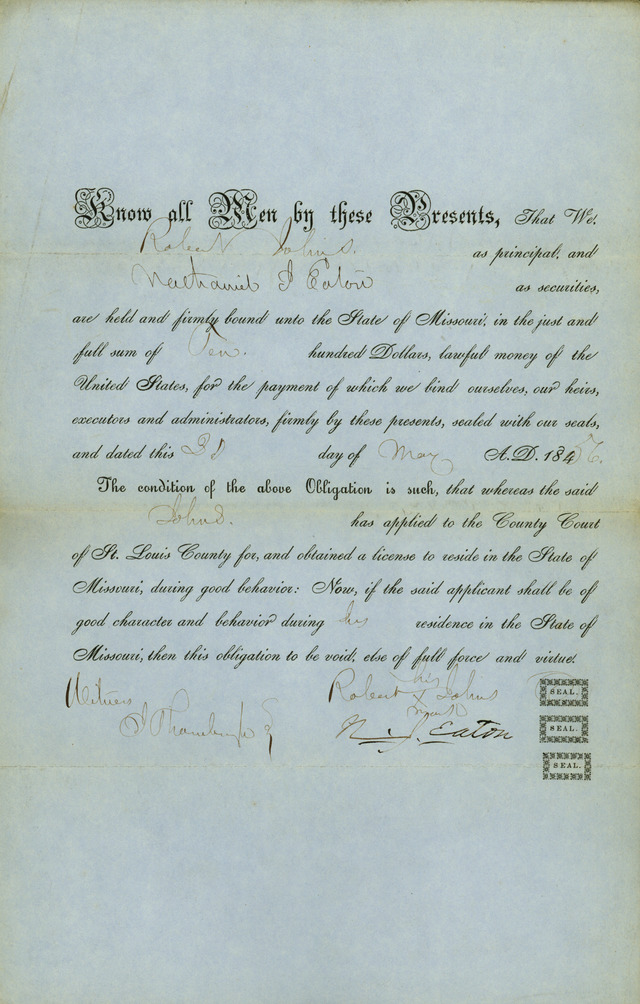 Know all Men by these Presents, That We,
Robert Johns. as principal, and
Nathaniel J Eaton as securities,
are held and firmly bound unto the State of Missouri, in the just and
full sum of Ten. hundred Dollars, lawful money of the
United States, for the payment of which we bind ourselves, our heirs,
executors and administrators, firmly by these presents, sealed with our seals,
and dated this 3d day of May A.D. 184
The condition of the above Obligation is such, that whereas the said
Johns. has applied to the County Court
of St. Louis County for, and obtained a license to reside in the State of
Missouri, during good behavior: Now, if the said applicant shall be of
good character and behavior during his residence in the State of
Missouri, then this obligation to be void, else of full force and virtue.
his
Witness Robert X Johns SEAL.
mark
N. J. Eaton SEAL.
SEAL.